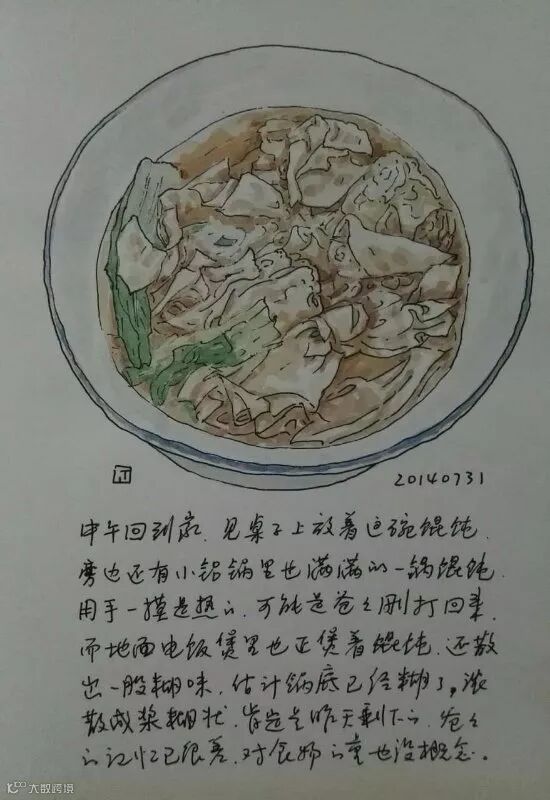 20140731
中午回到家，见桌子上放着这碗馄饨，
旁边还有小铝锅里也满满的一锅馄饨，
用手一摸是热的，可能是爸爸刚打回来，
而地面电饭煲里也正煲着馄饨，还散
出一股糊味，估计锅底已经糊了。
散成浆糊状，肯定是昨天剩下的，爸爸
的记忆已很差，对食物的量也没概念。
大数跨境